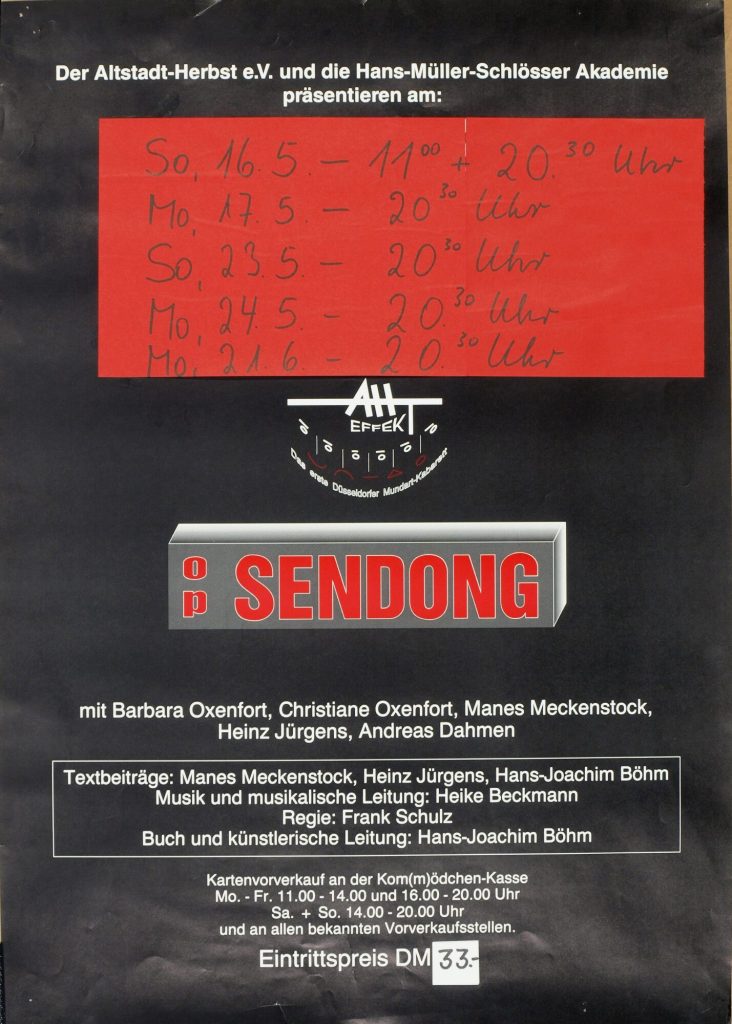 Der Altstadt-Herbst e.V. und die Hans-Müller-Schlösser Akademie
präsentieren am:
So, 16.5. – 11⁰⁰ + 20.³⁰ Uhr
Mo, 17.5. – 20³⁰ Uhr
So, 23.5. – 20³⁰ Uhr
Mo, 24.5. – 20.³⁰ Uhr
Mo, 21.6. – 20.³⁰ Uhr
Alt
EFFEKT
Das erste Düsseldorfer Mundart-Kabarett
op SENDONG
mit Barbara Oxenfort, Christiane Oxenfort, Manes Meckenstock,
Heinz Jürgens, Andreas Dahmen
Textbeiträge: Manes Meckenstock, Heinz Jürgens, Hans-Joachim Böhm
Musik und musikalische Leitung: Heike Beckmann
Regie: Frank Schulz
Buch und künstlerische Leitung: Hans-Joachim Böhm
Kartenvorverkauf an der Kom(m)ödchen-Kasse
Mo. - Fr. 11.00 - 14.00 und 16.00 - 20.00 Uhr
Sa. + So. 14.00 - 20.00 Uhr
und an allen bekannten Vorverkaufsstellen.
Eintrittspreis DM 33.-